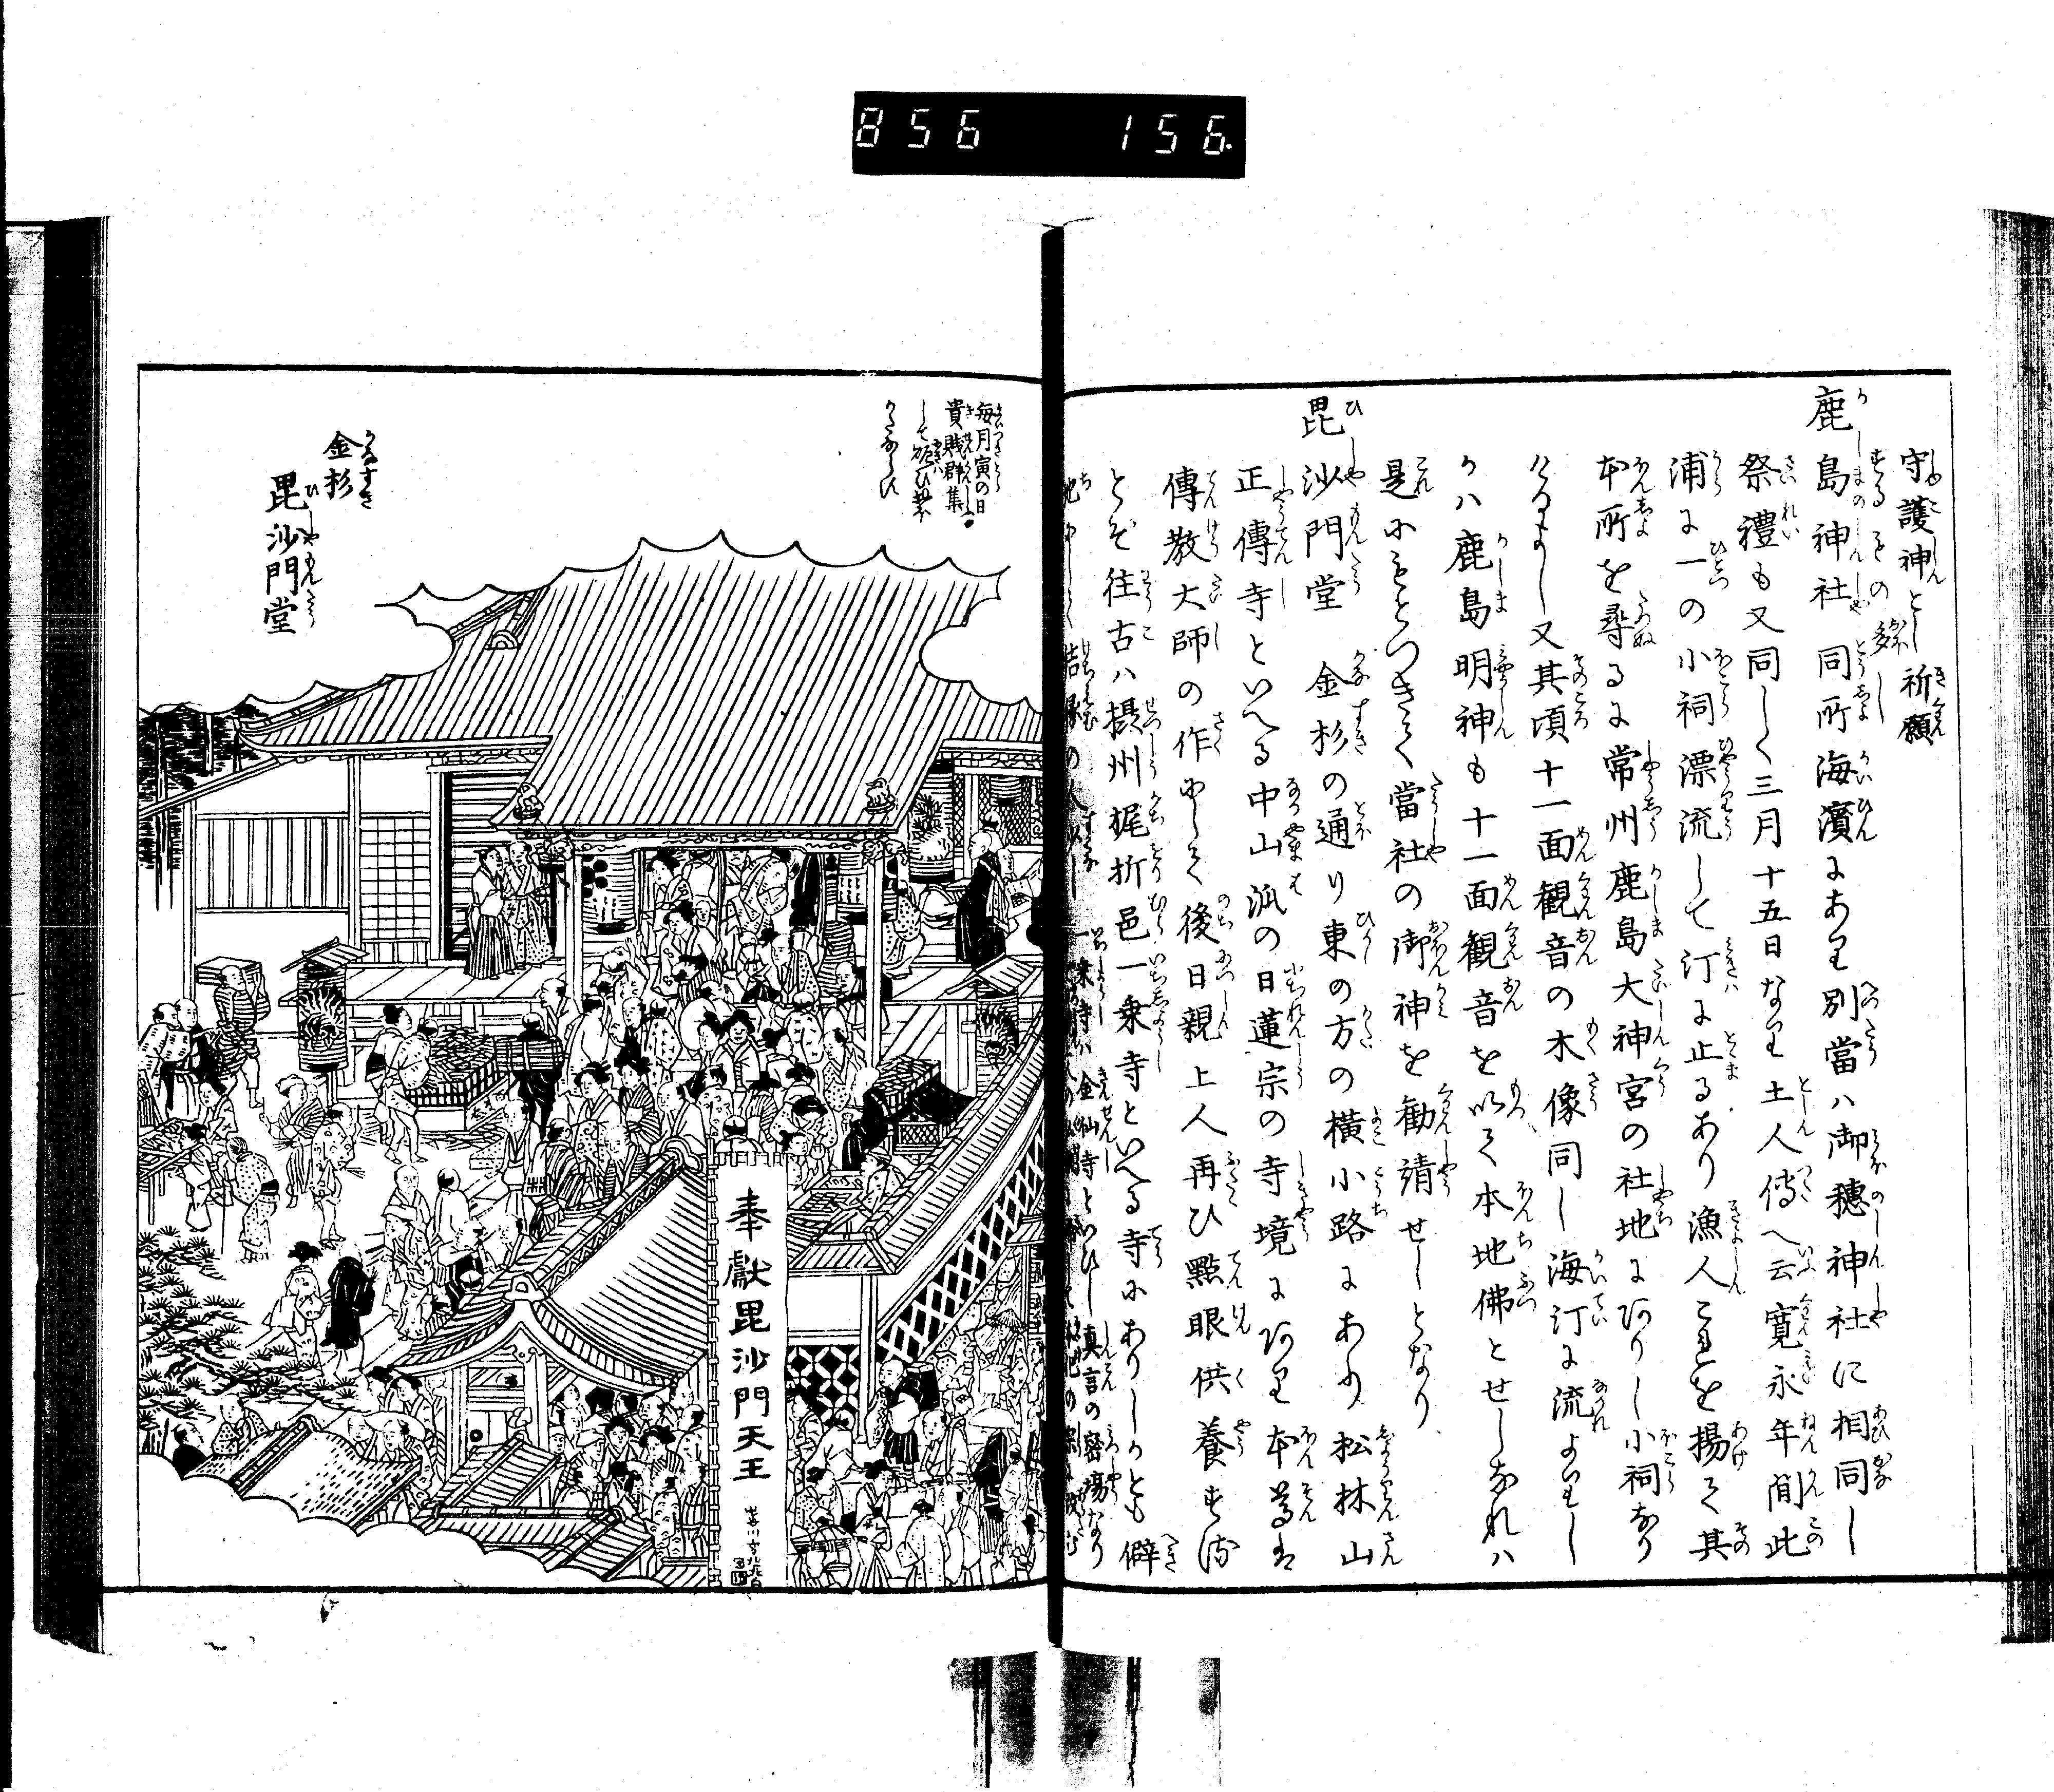 856 156
守護神とし祈願
するもの多し
鹿島神社 同所海濱にあり別當ハ御穗神社に相同し
祭禮も又同しく三月十五日なり土人傳へ云寛永年間此
浦に一の小祠漂流して汀に止るあり漁人これを揚て其
本所を尋るに常州鹿島大神宮の社地にありし小祠なり
けるよし又其頃十一面観音の木像同し海汀に流よりし
かハ鹿島明神も十一面観音を以て本地佛とせしなれハ
是にもとつきて當社の御神を勧請せしとなり
毘沙門堂 金杉の通り東の方の横小路にあり松林山
正傳寺といへる中山派の日蓮宗の寺境にあり本尊は
傳教大師の作にして後日親上人再ひ點眼供養す
とそ往古ハ摂州梶折邑一乗寺といへる寺にありしかとも僻
一乗寺ハ金仙寺といひし真言の密場なり
毎月寅の日
貴賤群集
して
金杉
毘沙門堂
奉獻毘沙門天王